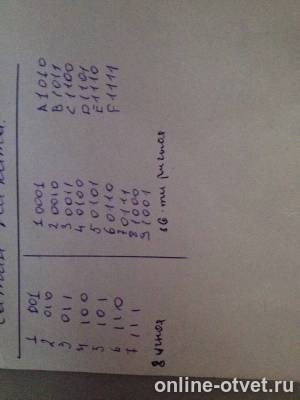 1 001
2 010
3 011
4 100
5 101
6 110
7 111
8 ичная
1 0001
2 0010
3 0011
4 0100
5 0101
6 0110
7 0111
8 1000
9 1001
16-ти ричная
A 1010
B 1011
C 1100
D 1101
E 1110
F 1111
online-otvet.ru